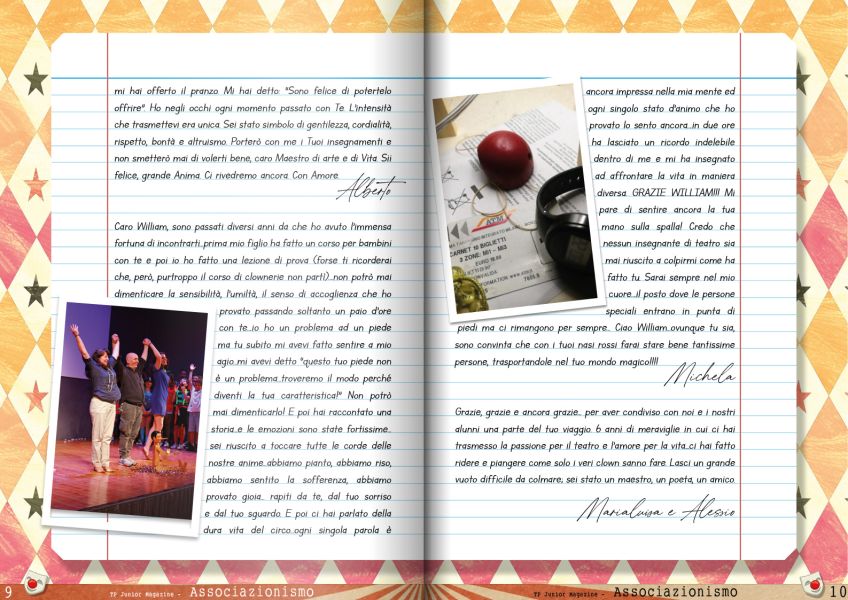 mi hai offerto il pranzo. Mi hai detto: "Sono felice di potertelo
offrire". Ho negli occhi ogni momento passato con Te. L'intensità
che trasmettevi era unica. Sei stato simbolo di gentilezza, cordialità,
rispetto, bontà e altruismo. Porterò con me i Tuoi insegnamenti e
non smetterò mai di volerti bene, caro Maestro di arte e di Vita. Sii
felice, grande Anima. Ci rivedremo ancora. Con Amore.
Alberto
Caro William, sono passati diversi anni da che ho avuto l'immensa
fortuna di incontrarti...prima mio figlio ha fatto un corso per bambini
con te e poi io ho fatto una lezione di prova (forse ti ricorderai
che, però, purtroppo il corso di clownerie non partì)...non potrò mai
dimenticare la sensibilità, l'umiltà, il senso di accoglienza che ho
provato passando soltanto un paio d'ore
con te...io ho un problema ad un piede
ma tu subito mi avevi fatto sentire a mio
agio...mi avevi detto "questo tuo piede non
è un problema...troveremo il modo perché
diventi la tua caratteristica!" Non potrò
mai dimenticarlo! E poi hai raccontato una
storia...e le emozioni sono state fortissime...
sei riuscito a toccare tutte le corde delle
nostre anime...abbiamo pianto, abbiamo riso,
abbiamo sentito la sofferenza, abbiamo
provato gioia... rapiti da te, dal tuo sorriso
e dal tuo sguardo. E poi ci hai parlato della
dura vita del circo...ogni singola parola è
ancora impressa nella mia mente ed
ogni singolo stato d'animo che ho
provato lo sento ancora...in due ore
ha lasciato un ricordo indelebile
dentro di me e mi ha insegnato
ad affrontare la vita in maniera
diversa. GRAZIE WILLIAM!!!! Mi
pare di sentire ancora la tua
mano sulla spalla! Credo che
nessun insegnante di teatro sia
mai riuscito a colpirmi come ha
fatto tu. Sarai sempre nel mio
cuore...il posto dove le persone
speciali entrano in punta di
piedi ma ci rimangono per sempre... Ciao William...ovunque tu sia,
sono convinta che con i tuoi nasi rossi farai stare bene tantissime
persone, trasportandole nel tuo mondo magico!!!!
Michela
Grazie, grazie e ancora grazie... per aver condiviso con noi e i nostri
alunni una parte del tuo viaggio. 6 anni di meraviglie in cui ci hai
trasmesso la passione per il teatro e l'amore per la vita...ci hai fatto
ridere e piangere come solo i veri clown sanno fare. Lasci un grande
vuoto difficile da colmare; sei stato un maestro, un poeta, un amico.
Marialuisa e Alessio
ATM
CARNET 10 BIGLIETTI
3 ZONE: MI1 - MI3
EURO
9 TP Junior Magazine - Associazionismo
TP Junior Magazine - Associazionismo 10